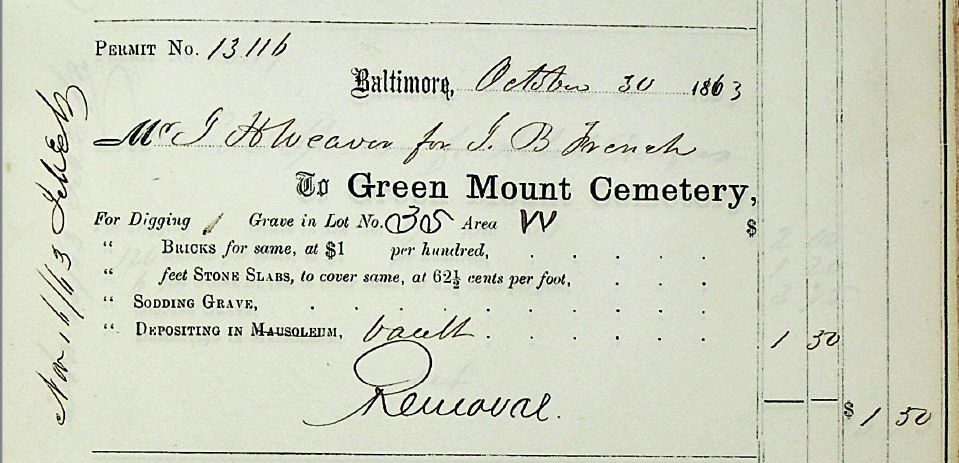 PERMIT No. 13116
Baltimore, October 30 1863
Mr J H Weaver for J. B French
To Green Mount Cemetery,
For Digging 1 Grave in Lot No. 305 Area W $
" BRICKS for same, at $1 per hundred, . . . .
" feet STONE SLABS, to cover same, at 62½ cents per foot, . . .
" SODDING GRAVE, . . . . . . . .
" DEPOSITING IN MAUSOLEUM, vault . . . . . . 1 50
Removal.
$ 1 50
Nov 16/63